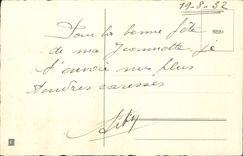 19-8-32
Pour la bonne fête
de ma Jeannette je
t'envoie mes plus
tendres caresses